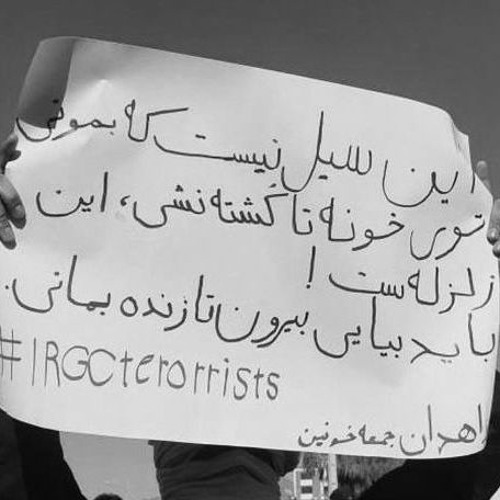 این سیل نیست که بمونی
توی خونه تا کُشته نشی، این
زلزله ست !
باید بیایی بیرون تا زنده بمانی.
#IRGCterorrists
زاهدان جمعه خونین